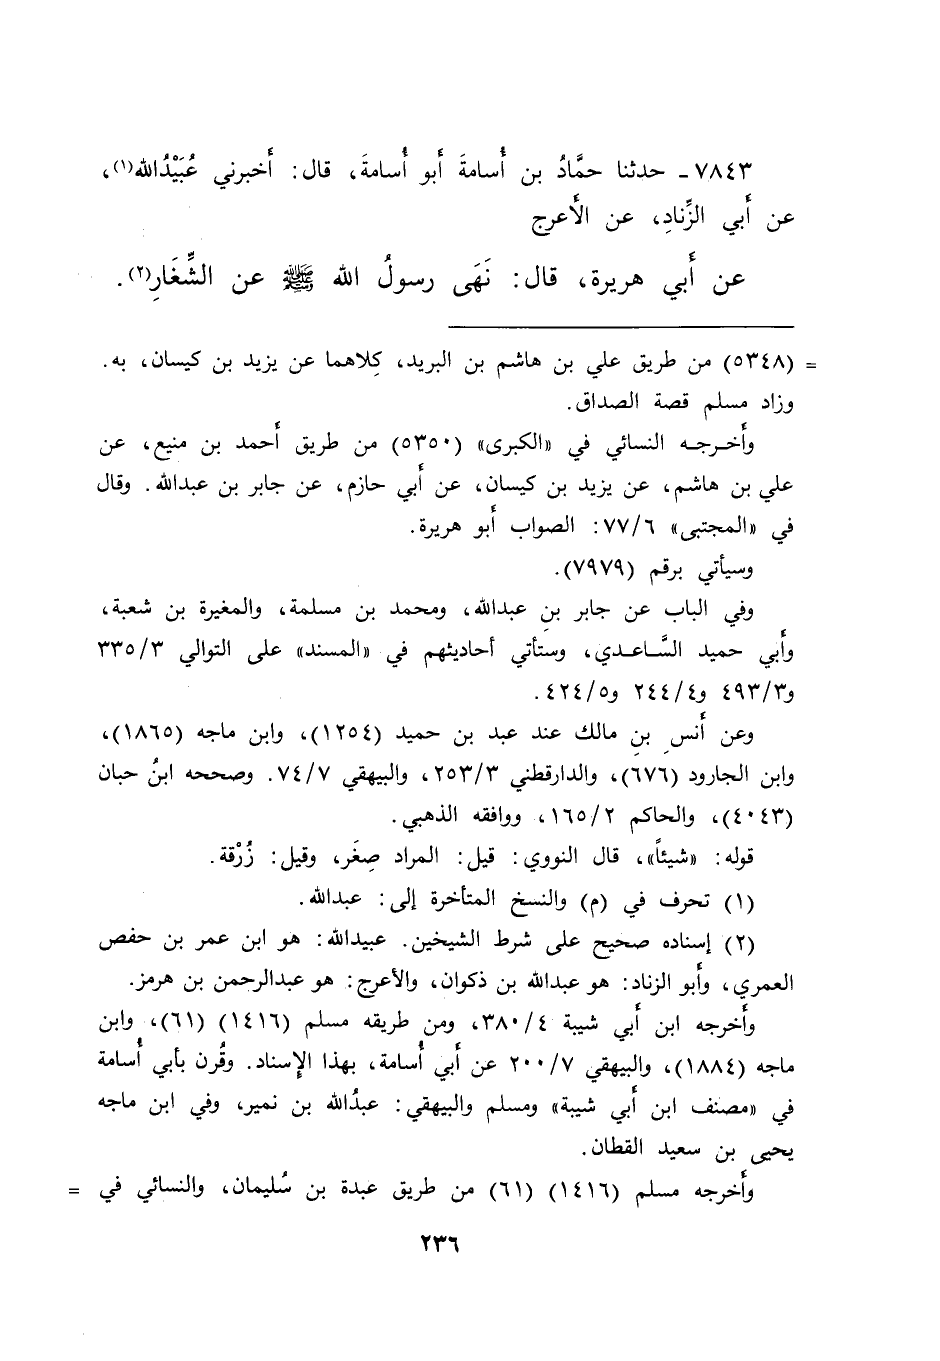 ٧٨٤٣ - حدثنا حمَّادُ بن أُسامةَ أَبو أُسامةَ، قال: أَخبرني عُبَيْدُالله(١)،
عن أَبي الزِّنادِ، عن الأَعرج
عن أَبي هريرة، قال: نَهَى رسولُ الله ﷺ عن الشِّغَارِ(٢).
= (٥٣٤٨) من طريق علي بن هاشم بن البريد، كِلاهما عن يزيد بن كيسان، به.
وزاد مسلم قصة الصداق.
وأَخرجه النسائي في «الكبرى» (٥٣٥٠) من طريق أَحمد بن منيع، عن
علي بن هاشم، عن يزيد بن كيسان، عن أَبي حازم، عن جابر بن عبدالله. وقال
في «المجتبى» ٧٧/٦: الصواب أَبو هريرة.
وسيأتي برقم (٧٩٧٩).
وفي الباب عن جابر بنِ عبدالله، ومحمد بن مسلمة، والمغيرة بن شعبة،
وأَبي حميد السَّاعدي، وستأتي أحاديثهم في «المسند» على التوالي ٣٣٥/٣
و٤٩٣/٣ و٢٤٤/٤ و٤٢٤/٥.
وعن أَنسِ بنِ مالك عند عبد بن حميد (١٢٥٤)، وابن ماجه (١٨٦٥)،
وابن الجارود (٦٧٦)، والدارقطني ٢٥٣/٣، والبيهقي ٧٤/٧. وصححه ابنُ حبان
(٤٠٤٣)، والحاكم ١٦٥/٢، ووافقه الذهبي.
قوله: «شيئاً»، قال النووي: قيل: المراد صِغَر، وقيل: زُرْقة.
(١) تحرف في (م) والنسخ المتأخرة إلى: عبدالله.
(٢) إسناده صحيح على شرط الشيخين. عبيدالله: هو ابن عمر بن حفص
العمري، وأَبو الزناد: هو عبدالله بن ذكوان، والأعرج: هو عبدالرحمن بن هرمز.
وأَخرجه ابن أَبي شيبة ٣٨٠/٤، ومن طريقه مسلم (١٤١٦) (٦١)، وابن
ماجه (١٨٨٤)، والبيهقي ٢٠٠/٧ عن أَبي أُسامة، بهذا الإِسناد. وقُرن بأَبي أُسامة
في «مصنف ابن أَبي شيبة» ومسلم والبيهقي: عبدُالله بن نمير، وفي ابن ماجه
يحيى بن سعيد القطان.
وأَخرجه مسلم (١٤١٦) (٦١) من طريق عبدة بن سُليمان، والنسائي في =
٢٣٦